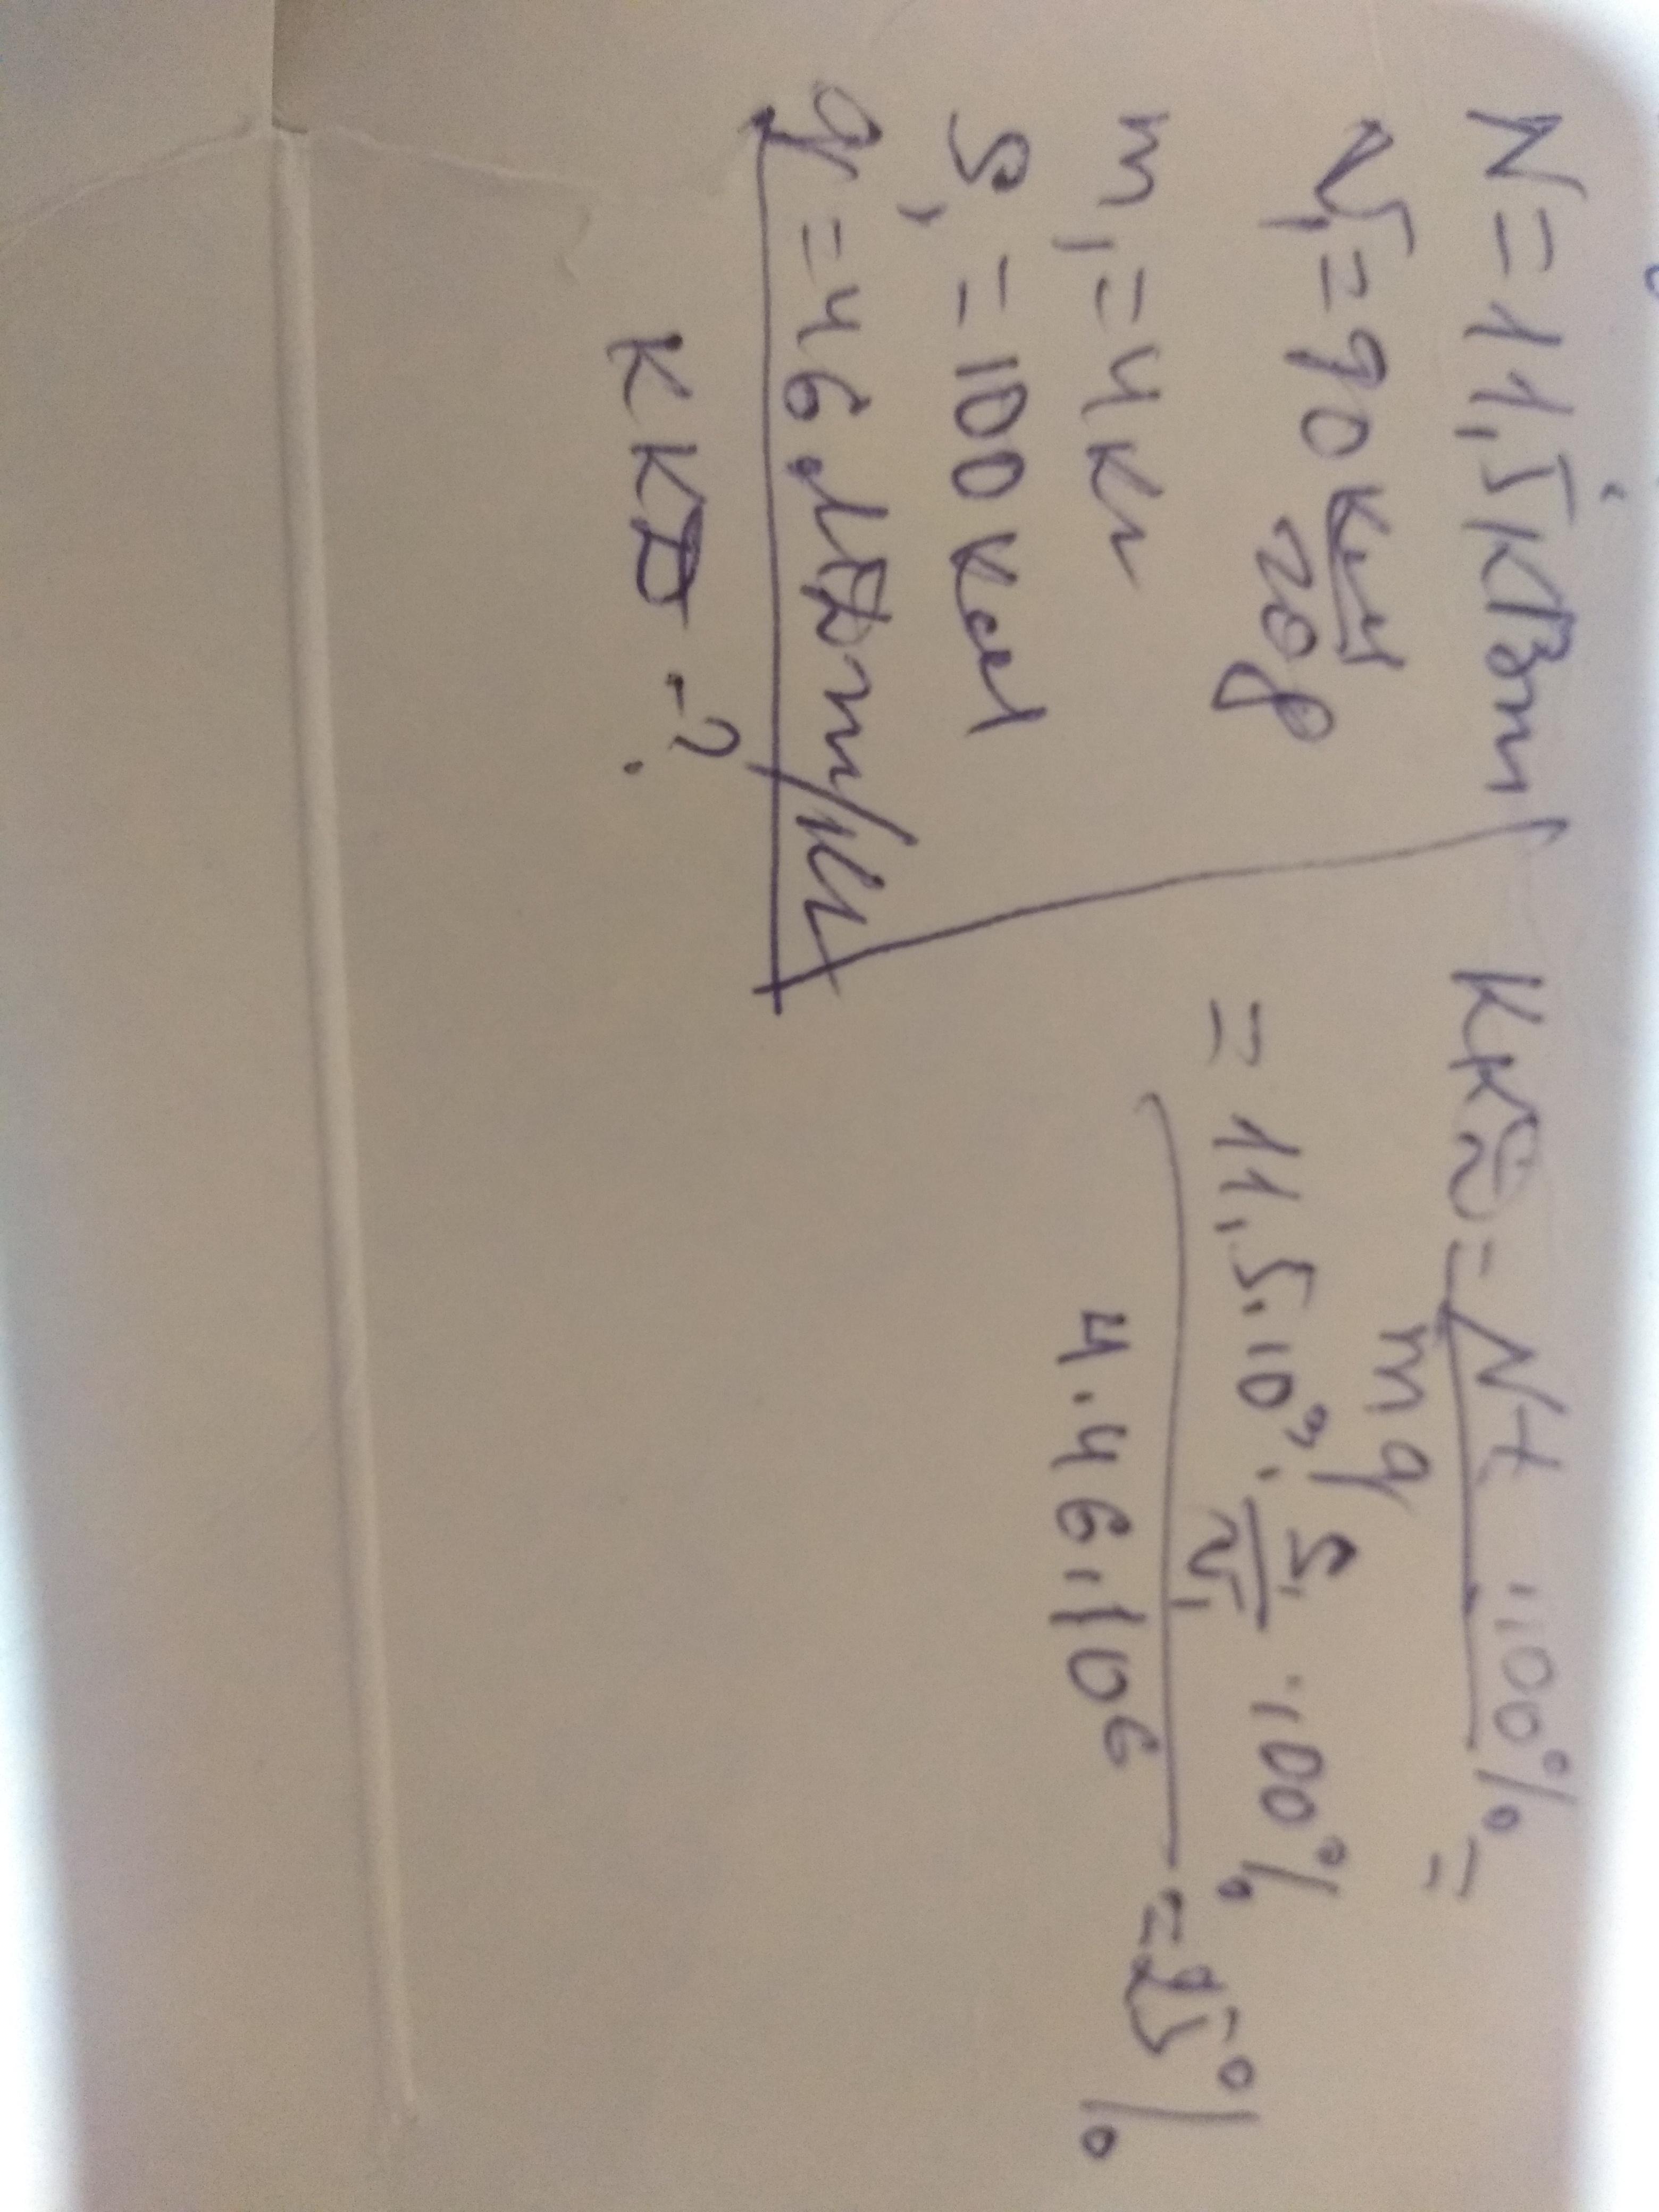 N = 11,5 кВт
V₁ = 90 км/год
m₁ = 4 кг
S₁ = 100 км
q = 46 МДж/кг
ККД - ?
ККД = Nt · 100% / mq =
= 11,5 · 10³ · S₁/V₁ · 100% / 4 · 46 · 10⁶ = 25%